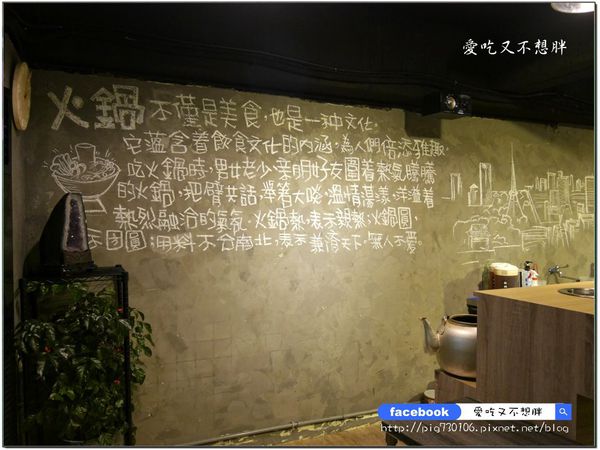 愛吃又不想胖
火鍋不僅是美食,也是一种文化,
它蘊含著飲食文化的內涵,為人們倍添雅趣。
吃火鍋時,男女老少、亲朋好友圍著熱氣騰騰
的火鍋,把臂共話,舉著大啖,溫情蕩漾,洋溢着
熱烈融洽的氣氛。火鍋熱,表示親熱,火鍋圓,
示团圓;用料不分南北,表示兼濟天下,無人不愛。
facebook 愛吃又不想胖
http://pig730106.pixnet.net/blog